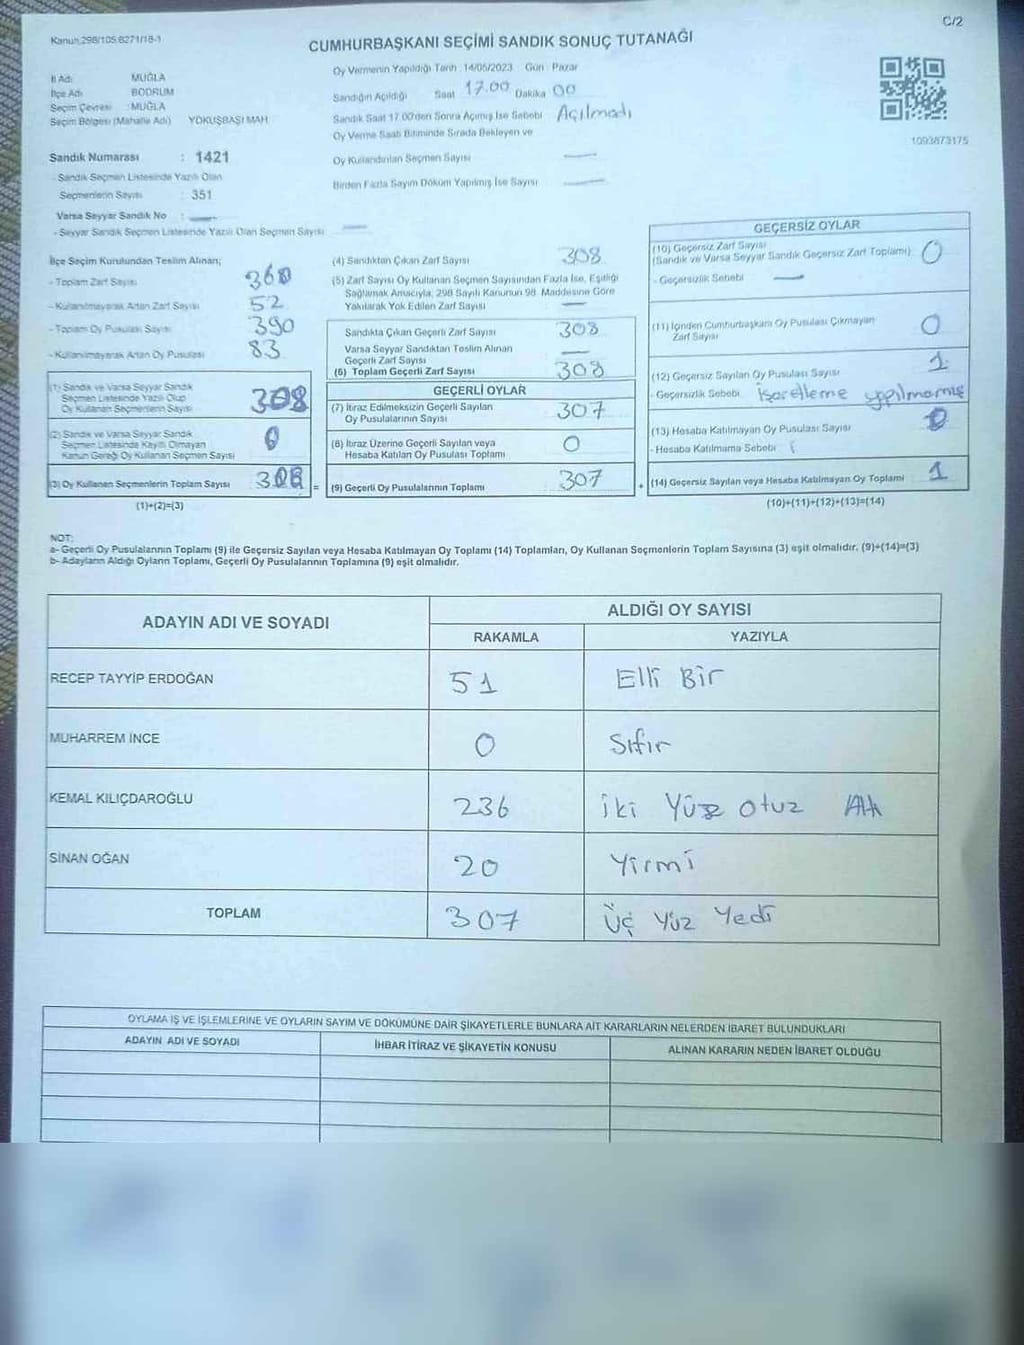 Kanun 298/105.6271/18-1
C/2
CUMHURBAŞKANI SEÇİMİ SANDIK SONUÇ TUTANAĞI
İl Adı: MUĞLA
İlçe Adı BODRUM
Seçim Çevresi : MUĞLA
Seçim Bölgesi (Mahalle Adı) YOKUŞBAŞI MAH.
Sandık Numarası : 1421
- Sandık Seçmen Listesinde Yazılı Olan
Seçmenlerin Sayısı : 351
Varsa Seyyar Sandık No : —
- Seyyar Sandık Seçmen Listesinde Yazılı Olan Seçmen Sayısı —
Oy Vermenin Yapıldığı Tarih :14/05/2023 Gün : Pazar
Sandığın Açıldığı Saat 17.00 Dakika 00
Sandık Saat 17.00'den Sonra Açılmış İse Sebebi Açılmadı
Oy Verme Saati Bitiminde Sırada Bekleyen ve
Oy Kullandırılan Seçmen Sayısı —
Birden Fazla Sayım Döküm Yapılmış İse Sayısı —
1093873175
İlçe Seçim Kurulundan Teslim Alınan;
- Toplam Zarf Sayısı 360
- Kullanılmayarak Artan Zarf Sayısı 52
- Toplam Oy Pusulası Sayısı 390
- Kullanılmayarak Artan Oy Pusulası 83
(1) Sandık ve Varsa Seyyar Sandık
Seçmen Listesinde Yazılı Olup
Oy Kullanan Seçmenlerin Sayısı 308
(2) Sandık ve Varsa Seyyar Sandık
Seçmen Listesinde Kayıtlı Olmayan
Kanun Gereği Oy Kullanan Seçmen Sayısı 0
(3) Oy Kullanan Seçmenlerin Toplam Sayısı 308 =
(1)+(2)=(3)
(4) Sandıktan Çıkan Zarf Sayısı 308
(5) Zarf Sayısı Oy Kullanan Seçmen Sayısından Fazla İse, Eşitliği
Sağlamak Amacıyla, 298 Sayılı Kanunun 98. Maddesine Göre
Yakılarak Yok Edilen Zarf Sayısı —
Sandıkta Çıkan Geçerli Zarf Sayısı 308
Varsa Seyyar Sandıktan Teslim Alınan
Geçerli Zarf Sayısı —
(6) Toplam Geçerli Zarf Sayısı 308
GEÇERLİ OYLAR
(7) İtiraz Edilmeksizin Geçerli Sayılan
Oy Pusulalarının Sayısı 307
(8) İtiraz Üzerine Geçerli Sayılan veya
Hesaba Katılan Oy Pusulası Toplamı 0
(9) Geçerli Oy Pusulalarının Toplamı 307 +
GEÇERSİZ OYLAR
(10) Geçersiz Zarf Sayısı
(Sandık ve Varsa Seyyar Sandık Geçersiz Zarf Toplamı) 0
- Geçersizlik Sebebi —
(11) İçinden Cumhurbaşkanı Oy Pusulası Çıkmayan
Zarf Sayısı 0
(12) Geçersiz Sayılan Oy Pusulası Sayısı 1
- Geçersizlik Sebebi İşaretleme yapılmamış
(13) Hesaba Katılmayan Oy Pusulası Sayısı 0
- Hesaba Katılmama Sebebi
(14) Geçersiz Sayılan veya Hesaba Katılmayan Oy Toplamı 1
(10)+(11)+(12)+(13)=(14)
NOT:
a- Geçerli Oy Pusulalarının Toplamı (9) ile Geçersiz Sayılan veya Hesaba Katılmayan Oy Toplamı (14) Toplamları, Oy Kullanan Seçmenlerin Toplam Sayısına (3) eşit olmalıdır. (9)+(14)=(3)
b- Adayların Aldığı Oyların Toplamı, Geçerli Oy Pusulalarının Toplamına (9) eşit olmalıdır.
ADAYIN ADI VE SOYADI
ALDIĞI OY SAYISI
RAKAMLA YAZIYLA
RECEP TAYYİP ERDOĞAN 51 Elli Bir
MUHARREM İNCE 0 Sıfır
KEMAL KILIÇDAROĞLU 236 İki Yüz Otuz Altı
SİNAN OĞAN 20 Yirmi
TOPLAM 307 Üç Yüz Yedi
OYLAMA İŞ VE İŞLEMLERİNE VE OYLARIN SAYIM VE DÖKÜMÜNE DAİR ŞİKAYETLERLE BUNLARA AİT KARARLARIN NELERDEN İBARET BULUNDUKLARI
ADAYIN ADI VE SOYADI İHBAR İTİRAZ VE ŞİKAYETİN KONUSU ALINAN KARARIN NEDEN İBARET OLDUĞU